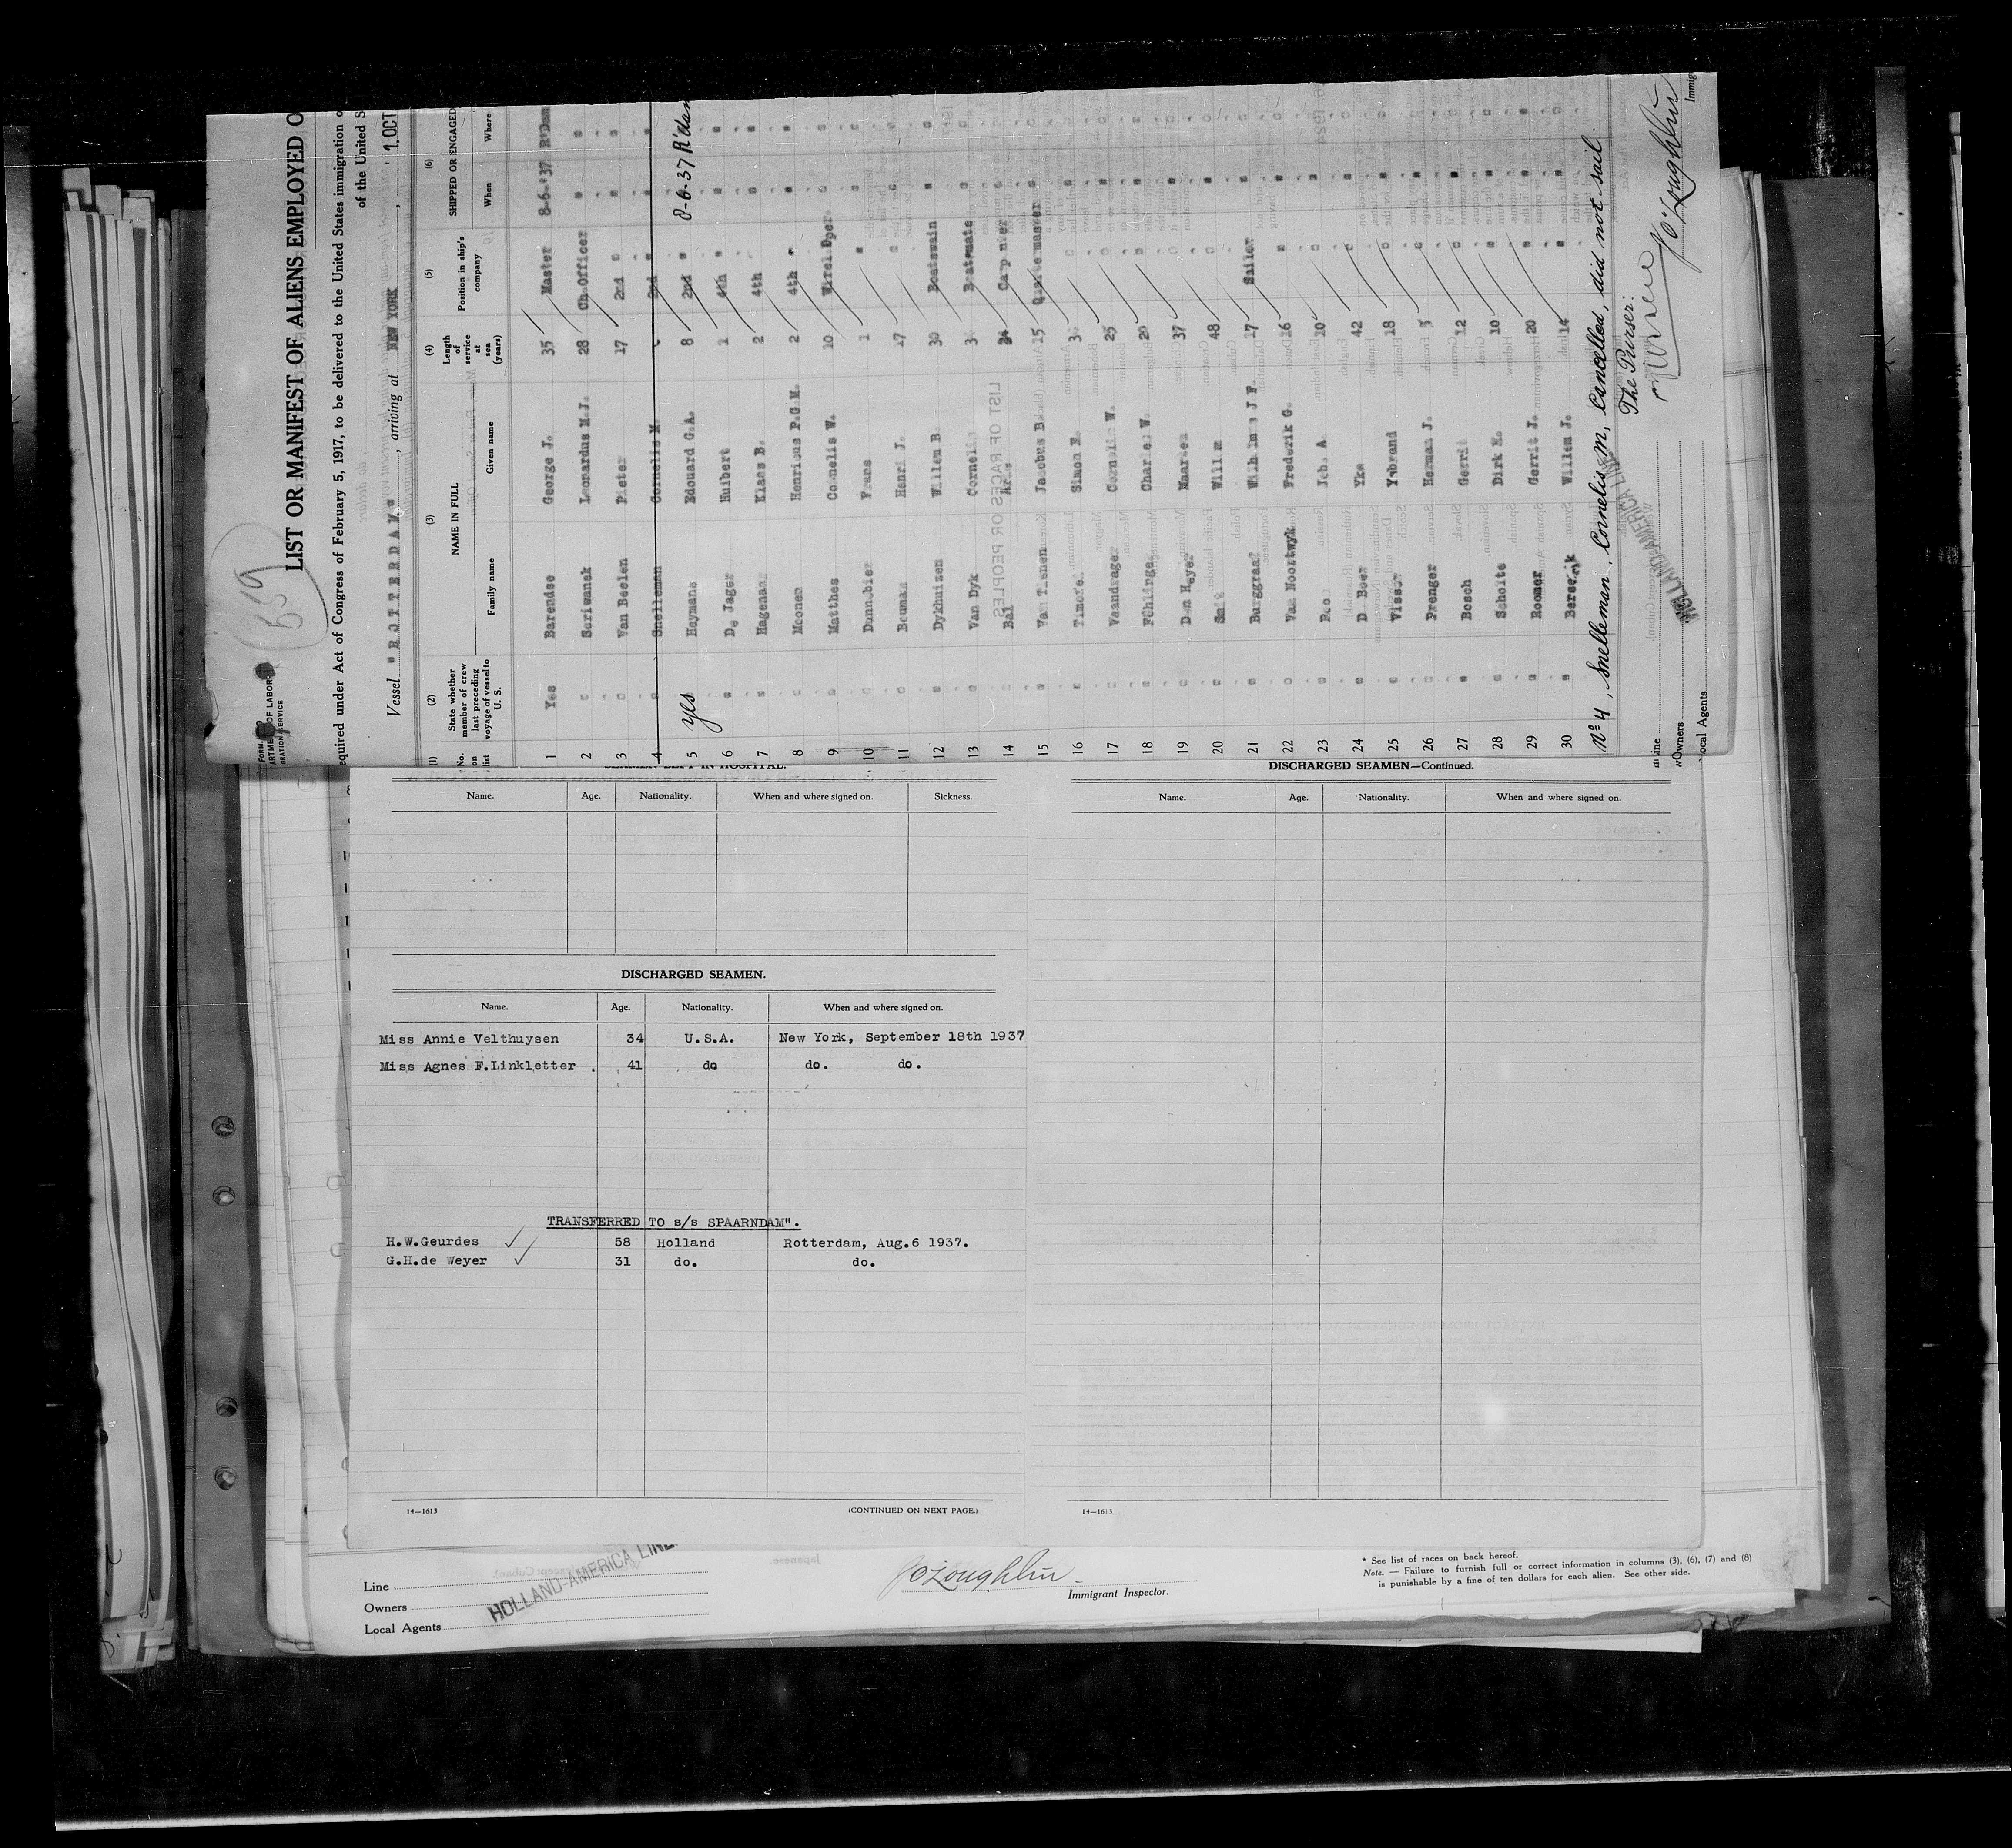 FORM
DEPARTMENT OF LABOR
IMMIGRATION SERVICE
659
LIST OR MANIFEST OF ALIENS EMPLOYED O
equired under Act of Congress of February 5, 1917, to be delivered to the United States immigration o
of the United S
Vessel "ROTTERDAM" , arriving at NEW YORK , 1.OCT
(1) (2) (3) (4) (5) (6)
No. on list State whether member of crew last preceding voyage of vessel to U. S. NAME IN FULL Length of service at sea (years) Position in ship's company SHIPPED OR ENGAGED
Family name Given name When Where
1 Yes Barendse George J. 35 Master 8-6-'37 R'Dam
2 " Scriwanek Leonardus M.J. 28 Ch.Officer " "
3 " Van Beelen Pieter 17 2nd " " "
4 " Snelleman Cornelis M. 2nd " "
5 yes Heymans Edouard G.A. 8 2nd " 8-6-37 R'dam
6 " De Jager Huibert 1 4th " " "
7 " Hagenaar Klaas B. 2 4th " "
8 " Moonen Henricus P.G.M. 2 4th " " "
9 " Matthes Cornelis W. 10 Wirel.Oper. " "
10 " Dunnebier Frans 1 " " "
11 " Bouman Henri J. 17 " " "
12 " Dykhuizen Willem B. 30 Boatswain " "
13 " Van Dyk Cornelis Boatsmate " "
14 " Bal Arie 34 Carpenter " "
15 " Van Tienen Jacobus B. 15 Quartermaster " "
16 " Simon 
17 " Vaandrager Cornelis W. 25 " " "
18 " Charles W. 20 " " "
19 " Den Heyer Maarten 37 " " "
20 " Smit Willem 48 " " "
21 " Burggraaf Wilhelmus J.F. 17 Sailor " "
22 " Van Nootwyk Frederik G. 16 " " "
23 " Joh. A. 10 " " "
24 " De Boer Yke 42 " " "
25 " Visser Ysbrand 18 " " "
26 " Prenger Herman J. 5 " " "
27 " Bosch Gerrit 12 " " "
28 " Scholte Dirk H. 10 " " "
29 " Roomer Gerrit J. 20 " " "
30 " Willem J. 14 " " "
No 4, Snelleman, Cornelis M, Cancelled, did not sail.
The Purser:
J O'Loughlin
Immig
Line
Owners
Local Agents
HOLLAND-AMERICA LINE
LIST OF RACES OR PEOPLES
SEAMEN LEFT IN HOSPITAL.
Name. Age. Nationality. When and where signed on. Sickness.
DISCHARGED SEAMEN.
Name. Age. Nationality. When and where signed on.
Miss Annie Velthuysen 34 U.S.A. New York, September 18th 1937
Miss Agnes F.Linkletter . 41 do do. do.
TRANSFERRED TO s/s SPAARNDAM".
H.W.Geurdes 58 Holland Rotterdam, Aug.6 1937.
G.H.de Weyer 31 do. do.
14—1613 (CONTINUED ON NEXT PAGE.)
DISCHARGED SEAMEN—Continued.
Name. Age. Nationality. When and where signed on.
14—1613
Line
Owners
Local Agents
HOLLAND-AMERICA LINE
J O'Loughlin
Immigrant Inspector.
* See list of races on back hereof.
Note. — Failure to furnish full or correct information in columns (3), (6), (7) and (8)
is punishable by a fine of ten dollars for each alien. See other side.